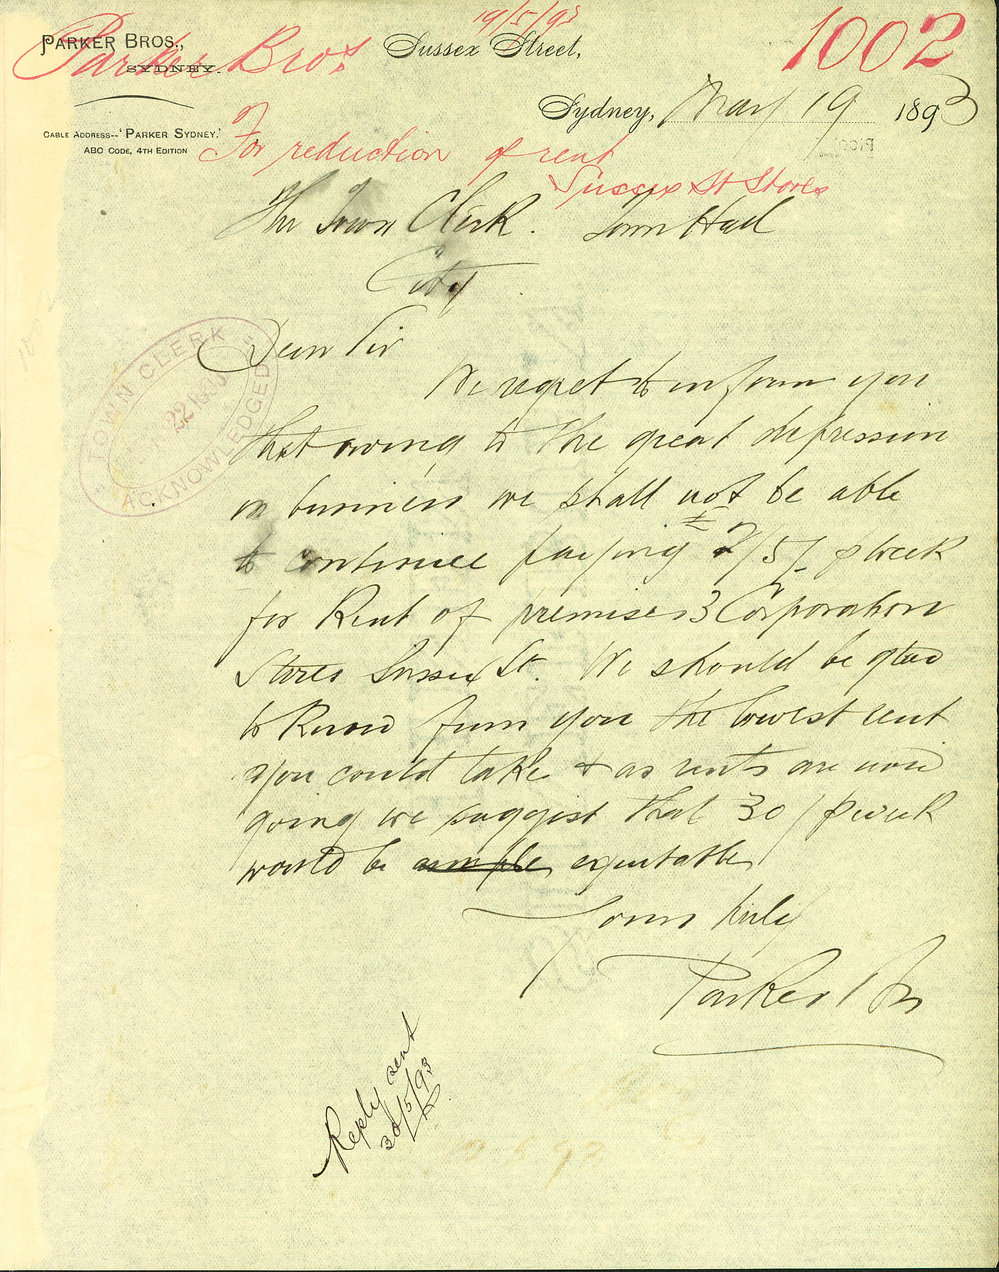 19/5/93
PARKER BROS.,
SYDNEY.
Parker Bros
Sussex Street,
1002
Sydney, May 19 1893
CABLE ADDRESS--'PARKER SYDNEY.'
ABC CODE, 4TH EDITION
For reduction of rent
Sussex St Stores
The Town Clerk. Town Hall
City
TOWN CLERK
22
ACKNOWLEDGED
Dear Sir
We regret to inform you
that owing to the great depression
in business we shall not be able
to continue paying £2/5/- p week
for Rent of premises 3 Corporation
Stores Sussex St. We should be glad
to know from you the lowest rent
you could take & as rents are now
going we suggest that 30/ p week
would be ample equitable
Yours truly
Parker Bros
Reply sent
30/5/93